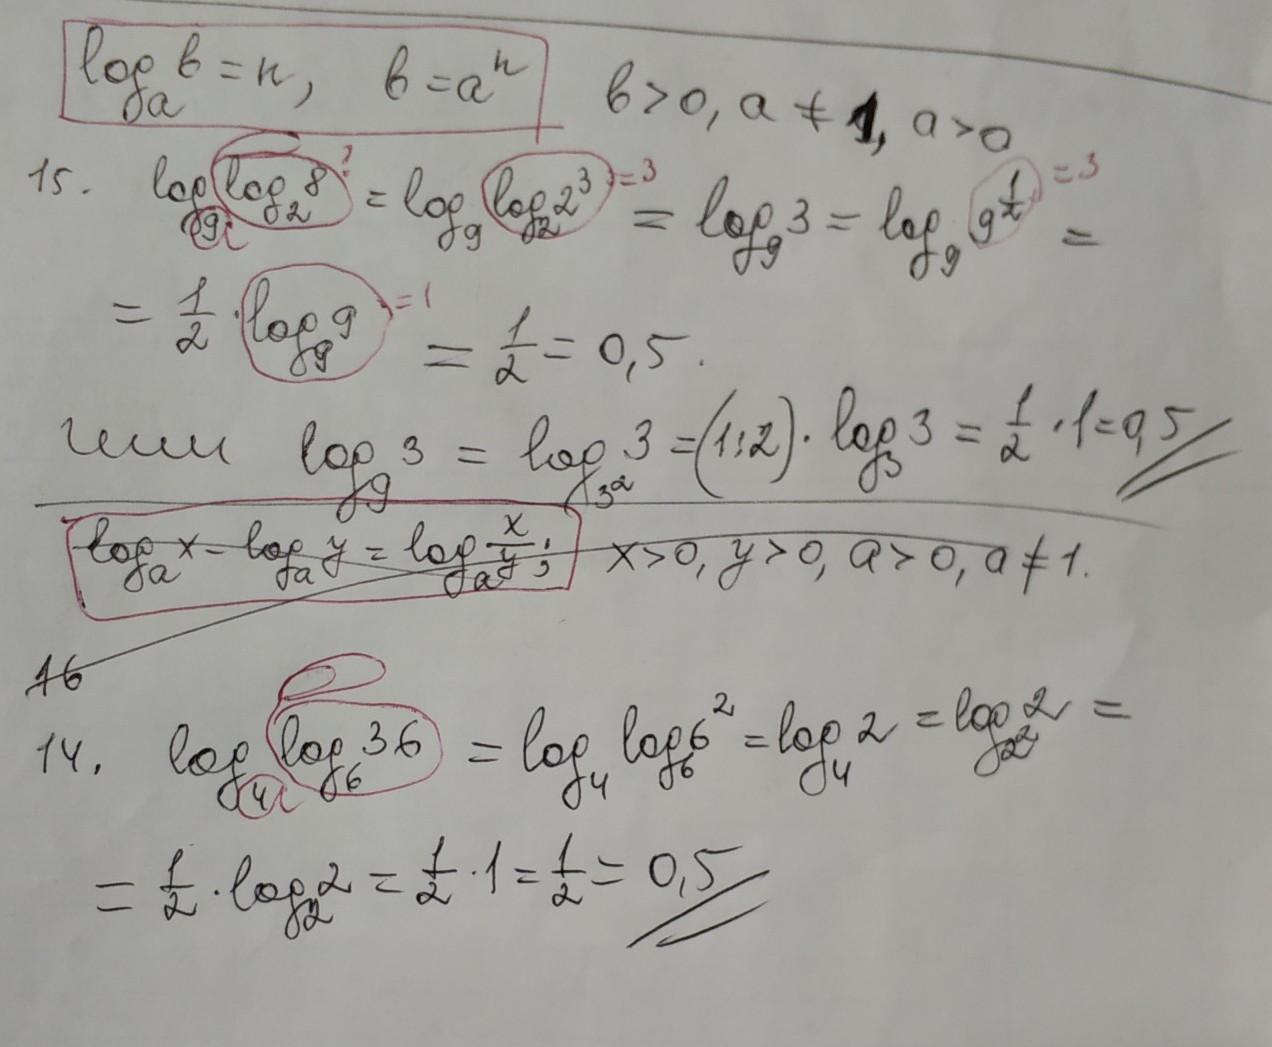 logₐ b = n, b = aⁿ b > 0, a ≠ 1, a > 0
15. log₉ log₂ 8 ? = log₉ log₂ 2³ = 3 = log₉ 3 = log₉ 9^(1/2) = 3 =
= 1/2 · log₉ 9 = 1 = 1/2 = 0,5.
или log₉ 3 = log_(3²) 3 = (1:2) · log₃ 3 = 1/2 · 1 = 0,5
logₐ x - logₐ y = logₐ x/y; x > 0, y > 0, a > 0, a ≠ 1.
16
14. log₄ log₆ 36 = log₄ log₆ 6² = log₄ 2 = log_(2²) 2 =
= 1/2 · log₂ 2 = 1/2 · 1 = 1/2 = 0,5